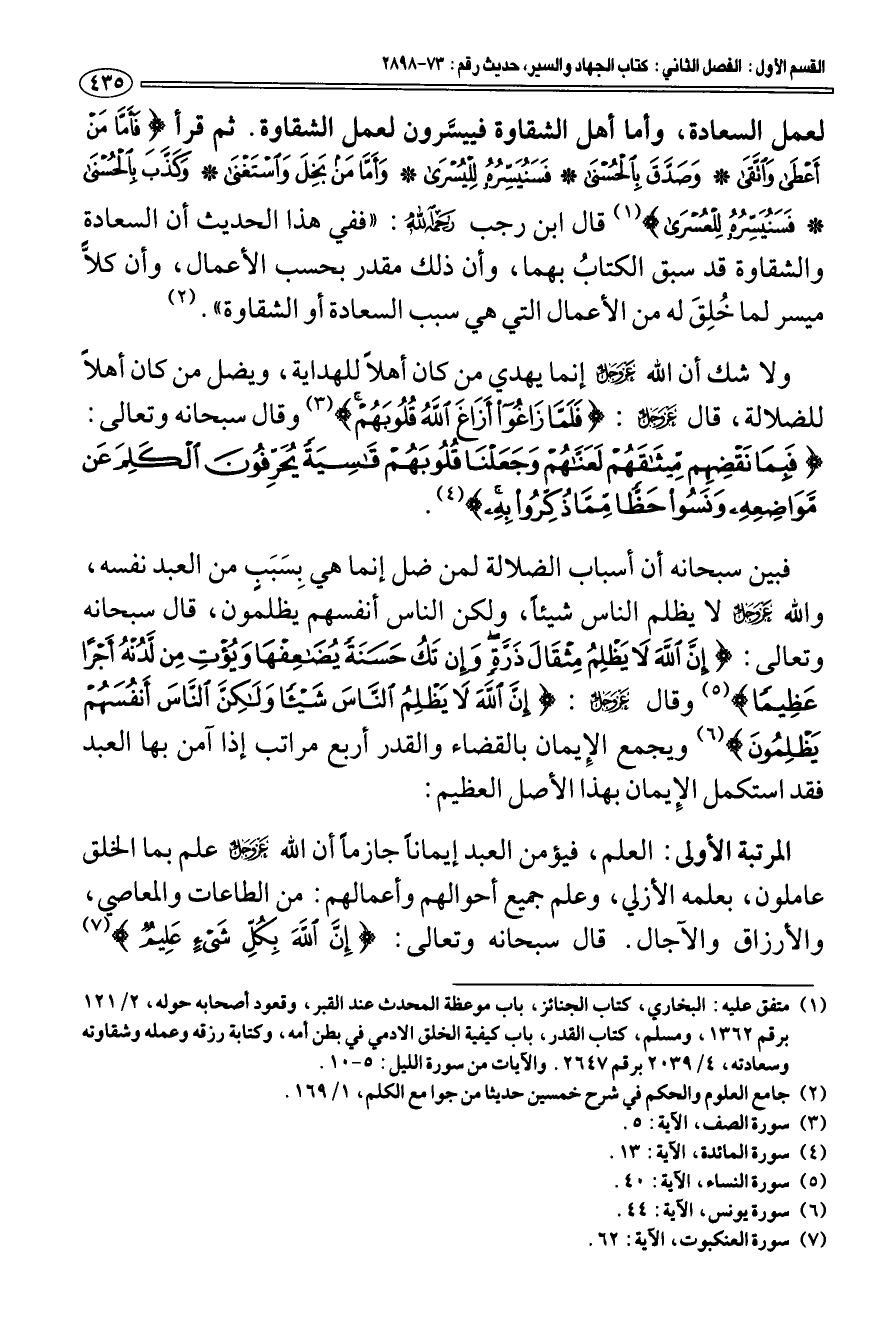 القسم الأول: الفصل الثاني: كتاب الجهاد والسير، حديث رقم: ٧٣-٢٨٩٨
٤٣٥
لعمل السعادة، وأما أهل الشقاوة فييسَّرون لعمل الشقاوة. ثم قرأ ﴿ فَأَمَّا مَنْ
أَعْطَى وَاتَّقَى * وَصَدَّقَ بِالْحُسْنَى * فَسَنُيَسِّرُهُ لِلْيُسْرَى * وَأَمَّا مَنْ بَخِلَ وَاسْتَغْنَى * وَكَذَّبَ بِالْحُسْنَى
* فَسَنُيَسِّرُهُ لِلْعُسْرَى﴾(١) قال ابن رجب رحمه الله: «ففي هذا الحديث أن السعادة
والشقاوة قد سبق الكتابُ بهما، وأن ذلك مقدر بحسب الأعمال، وأن كلاًّ
ميسر لما خُلِقَ له من الأعمال التي هي سبب السعادة أو الشقاوة». (٢)
ولا شك أن الله عز وجل إنما يهدي من كان أهلاً للهداية، ويضل من كان أهلاً
للضلالة، قال عز وجل: ﴿ فَلَمَّا زَاغُوٓا۟ أَزَاغَ ٱللَّهُ قُلُوبَهُمْ ۚ﴾(٣) وقال سبحانه وتعالى:
﴿ فَبِمَا نَقْضِهِم مِّيثَـٰقَهُمْ لَعَنَّـٰهُمْ وَجَعَلْنَا قُلُوبَهُمْ قَـٰسِيَةً يُحَرِّفُونَ ٱلْكَلِمَ عَن
مَّوَاضِعِهِۦ وَنَسُوا۟ حَظًّا مِّمَّا ذُكِّرُوا۟ بِهِۦ ۚ﴾(٤).
فبين سبحانه أن أسباب الضلالة لمن ضل إنما هي بِسَبَبٍ من العبد نفسه،
والله عز وجل لا يظلم الناس شيئاً، ولكن الناس أنفسهم يظلمون، قال سبحانه
وتعالى: ﴿ إِنَّ ٱللَّهَ لَا يَظْلِمُ مِثْقَالَ ذَرَّةٍ ۖ وَإِن تَكُ حَسَنَةً يُضَـٰعِفْهَا وَيُؤْتِ مِن لَّدُنْهُ أَجْرًا
عَظِيمًا﴾(٥) وقال عز وجل: ﴿ إِنَّ ٱللَّهَ لَا يَظْلِمُ ٱلنَّاسَ شَيْـًٔا وَلَـٰكِنَّ ٱلنَّاسَ أَنفُسَهُمْ
يَظْلِمُونَ﴾(٦) ويجمع الإيمان بالقضاء والقدر أربع مراتب إذا آمن بها العبد
فقد استكمل الإيمان بهذا الأصل العظيم:
المرتبة الأولى: العلم، فيؤمن العبد إيماناً جازماً أن الله عز وجل علم بما الخلق
عاملون، بعلمه الأزلي، وعلم جميع أحوالهم وأعمالهم: من الطاعات والمعاصي،
والأرزاق والآجال. قال سبحانه وتعالى: ﴿ إِنَّ ٱللَّهَ بِكُلِّ شَىْءٍ عَلِيمٌ ﴾(٧)
(١) متفق عليه: البخاري، كتاب الجنائز، باب موعظة المحدث عند القبر، وقعود أصحابه حوله، ٢/ ١٢١
برقم ١٣٦٢، ومسلم، كتاب القدر، باب كيفية الخلق الادمي في بطن أمه، وكتابة رزقه وعمله وشقاوته
وسعادته، ٤/ ٢٠٣٩ برقم ٢٦٤٧. والآيات من سورة الليل: ٥-١٠.
(٢) جامع العلوم والحكم في شرح خمسين حديثا من جوا مع الكلم، ١/ ١٦٩.
(٣) سورة الصف، الآية: ٥.
(٤) سورة المائدة، الآية: ١٣.
(٥) سورة النساء، الآية: ٤٠.
(٦) سورة يونس، الآية: ٤٤.
(٧) سورة العنكبوت، الآية: ٦٢.